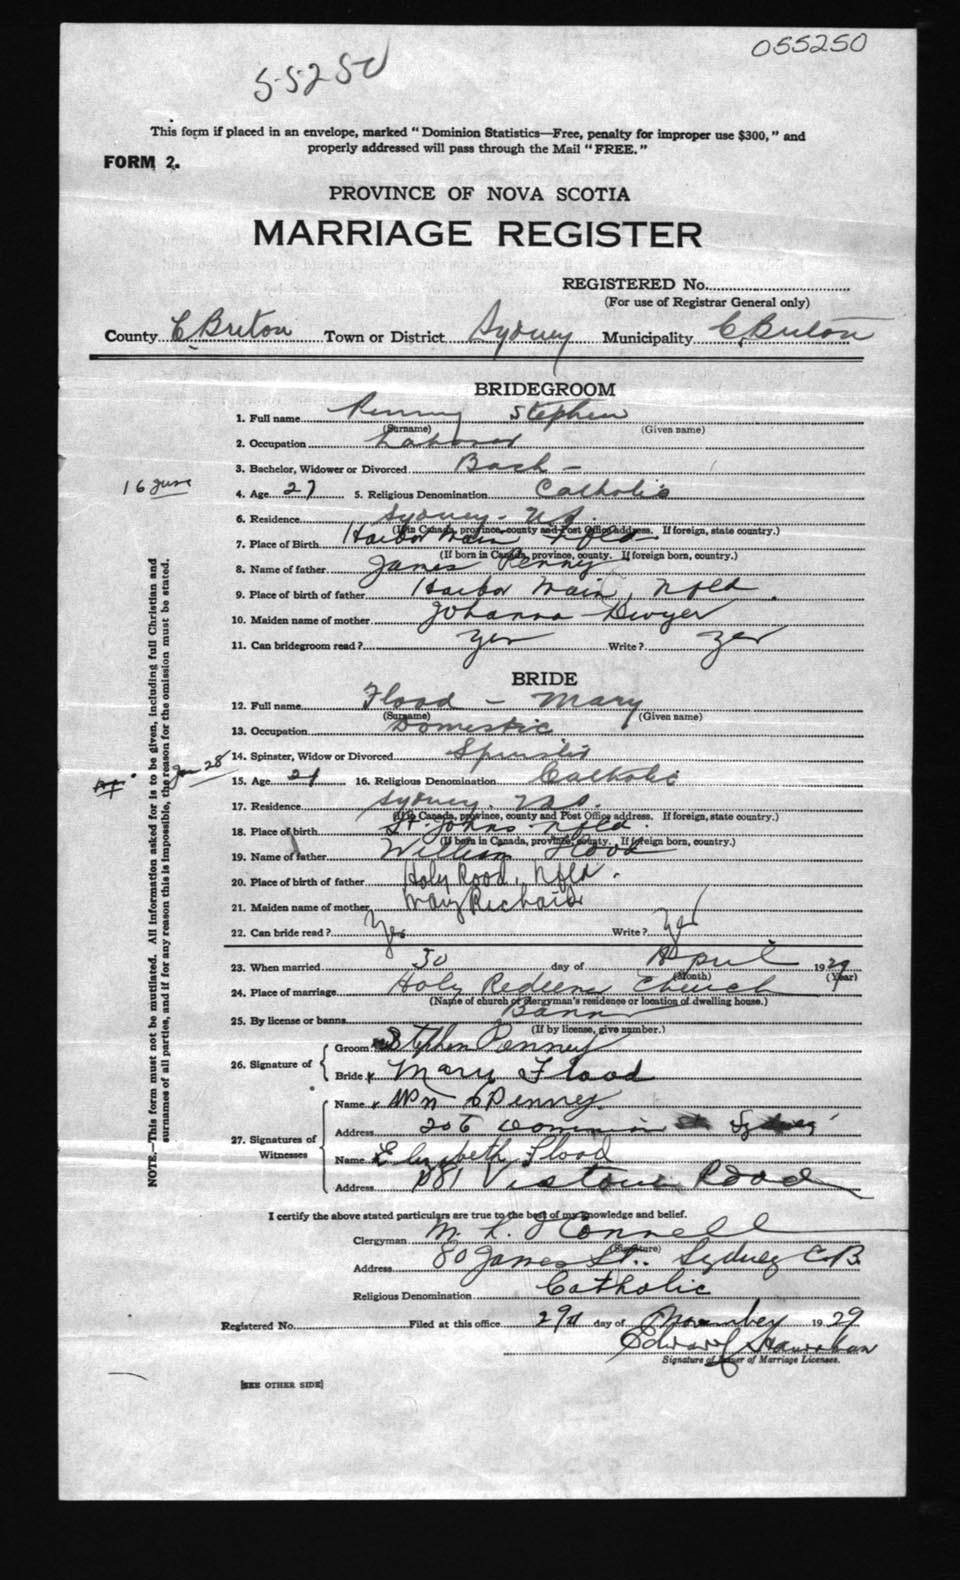 055250
55250
This form if placed in an envelope, marked "Dominion Statistics—Free, penalty for improper use $300," and
properly addressed will pass through the Mail "FREE."
FORM 2.
PROVINCE OF NOVA SCOTIA
MARRIAGE REGISTER
REGISTERED No.
(For use of Registrar General only)
County C. Breton Town or District Sydney Municipality C. Breton
BRIDEGROOM
1. Full name Penny Stephen
(Surname) (Given name)
2. Occupation Laborer
3. Bachelor, Widower or Divorced Bach -
16 June
4. Age 27 5. Religious Denomination Catholic
6. Residence Sydney - N.S.
(If in Canada, province, county and Post Office address. If foreign, state country.)
7. Place of Birth Harbor Main Nfld
(If born in Canada, province, county. If foreign born, country.)
8. Name of father James Penney
9. Place of birth of father Harbor Main, Nfld.
10. Maiden name of mother Johanna Dwyer
11. Can bridegroom read? yes Write? yes
BRIDE
12. Full name Flood - Mary
(Surname) (Given name)
13. Occupation Domestic
14. Spinster, Widow or Divorced Spinster
Jan 28
15. Age 21 16. Religious Denomination Catholic
17. Residence Sydney. N.S.
(If in Canada, province, county and Post Office address. If foreign, state country.)
18. Place of birth St. Johns Nfld.
(If born in Canada, province, county. If foreign born, country.)
19. Name of father William Flood
20. Place of birth of father Holy Rood, Nfld.
21. Maiden name of mother Mary
22. Can bride read? Yes Write? yes
23. When married 30 day of April 1929
(Month) (Year)
24. Place of marriage Holy Redeem Church
(Name of church or clergyman's residence or location of dwelling house.)
25. By license or banns Banns
(If by license, give number.)
26. Signature of
Groom Stephen Penney
Bride x Mary Flood
27. Signatures of Witnesses
Name x Wm Penney.
Address 206 Dominion St Sydney
Name Elizabeth Flood
Address Road
I certify the above stated particulars are true to the best of my knowledge and belief.
Clergyman M. L. O'Connell
(Signature)
Address 80 James St.. Sydney C.B.
Religious Denomination Catholic
Registered No. Filed at this office 29th day of November 1929
Edward Hanrahan
Signature of Issuer of Marriage Licenses.
[SEE OTHER SIDE]
NOTE.—This form must not be mutilated. All information asked for is to be given, including full Christian and
surnames of all parties, and if for any reason this is impossible, the reason for the omission must be stated.